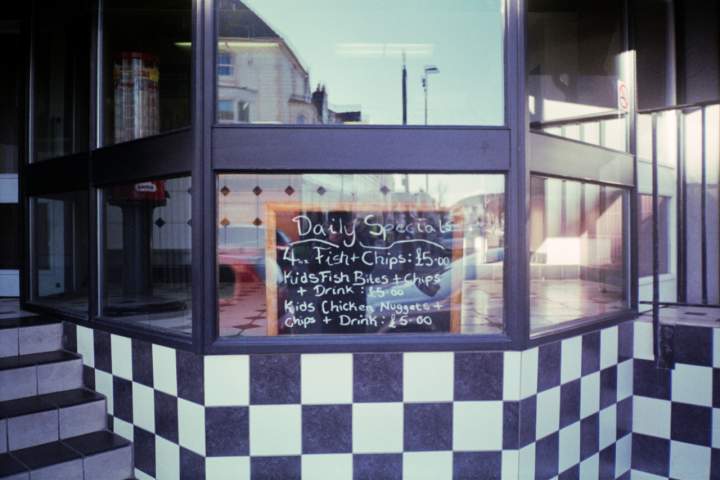 Daily Specials
4oz Fish + Chips: £5.00
Kids Fish Bites + Chips
+ Drink : £5.00
Kids Chicken Nuggets +
Chips + Drink : £5.00